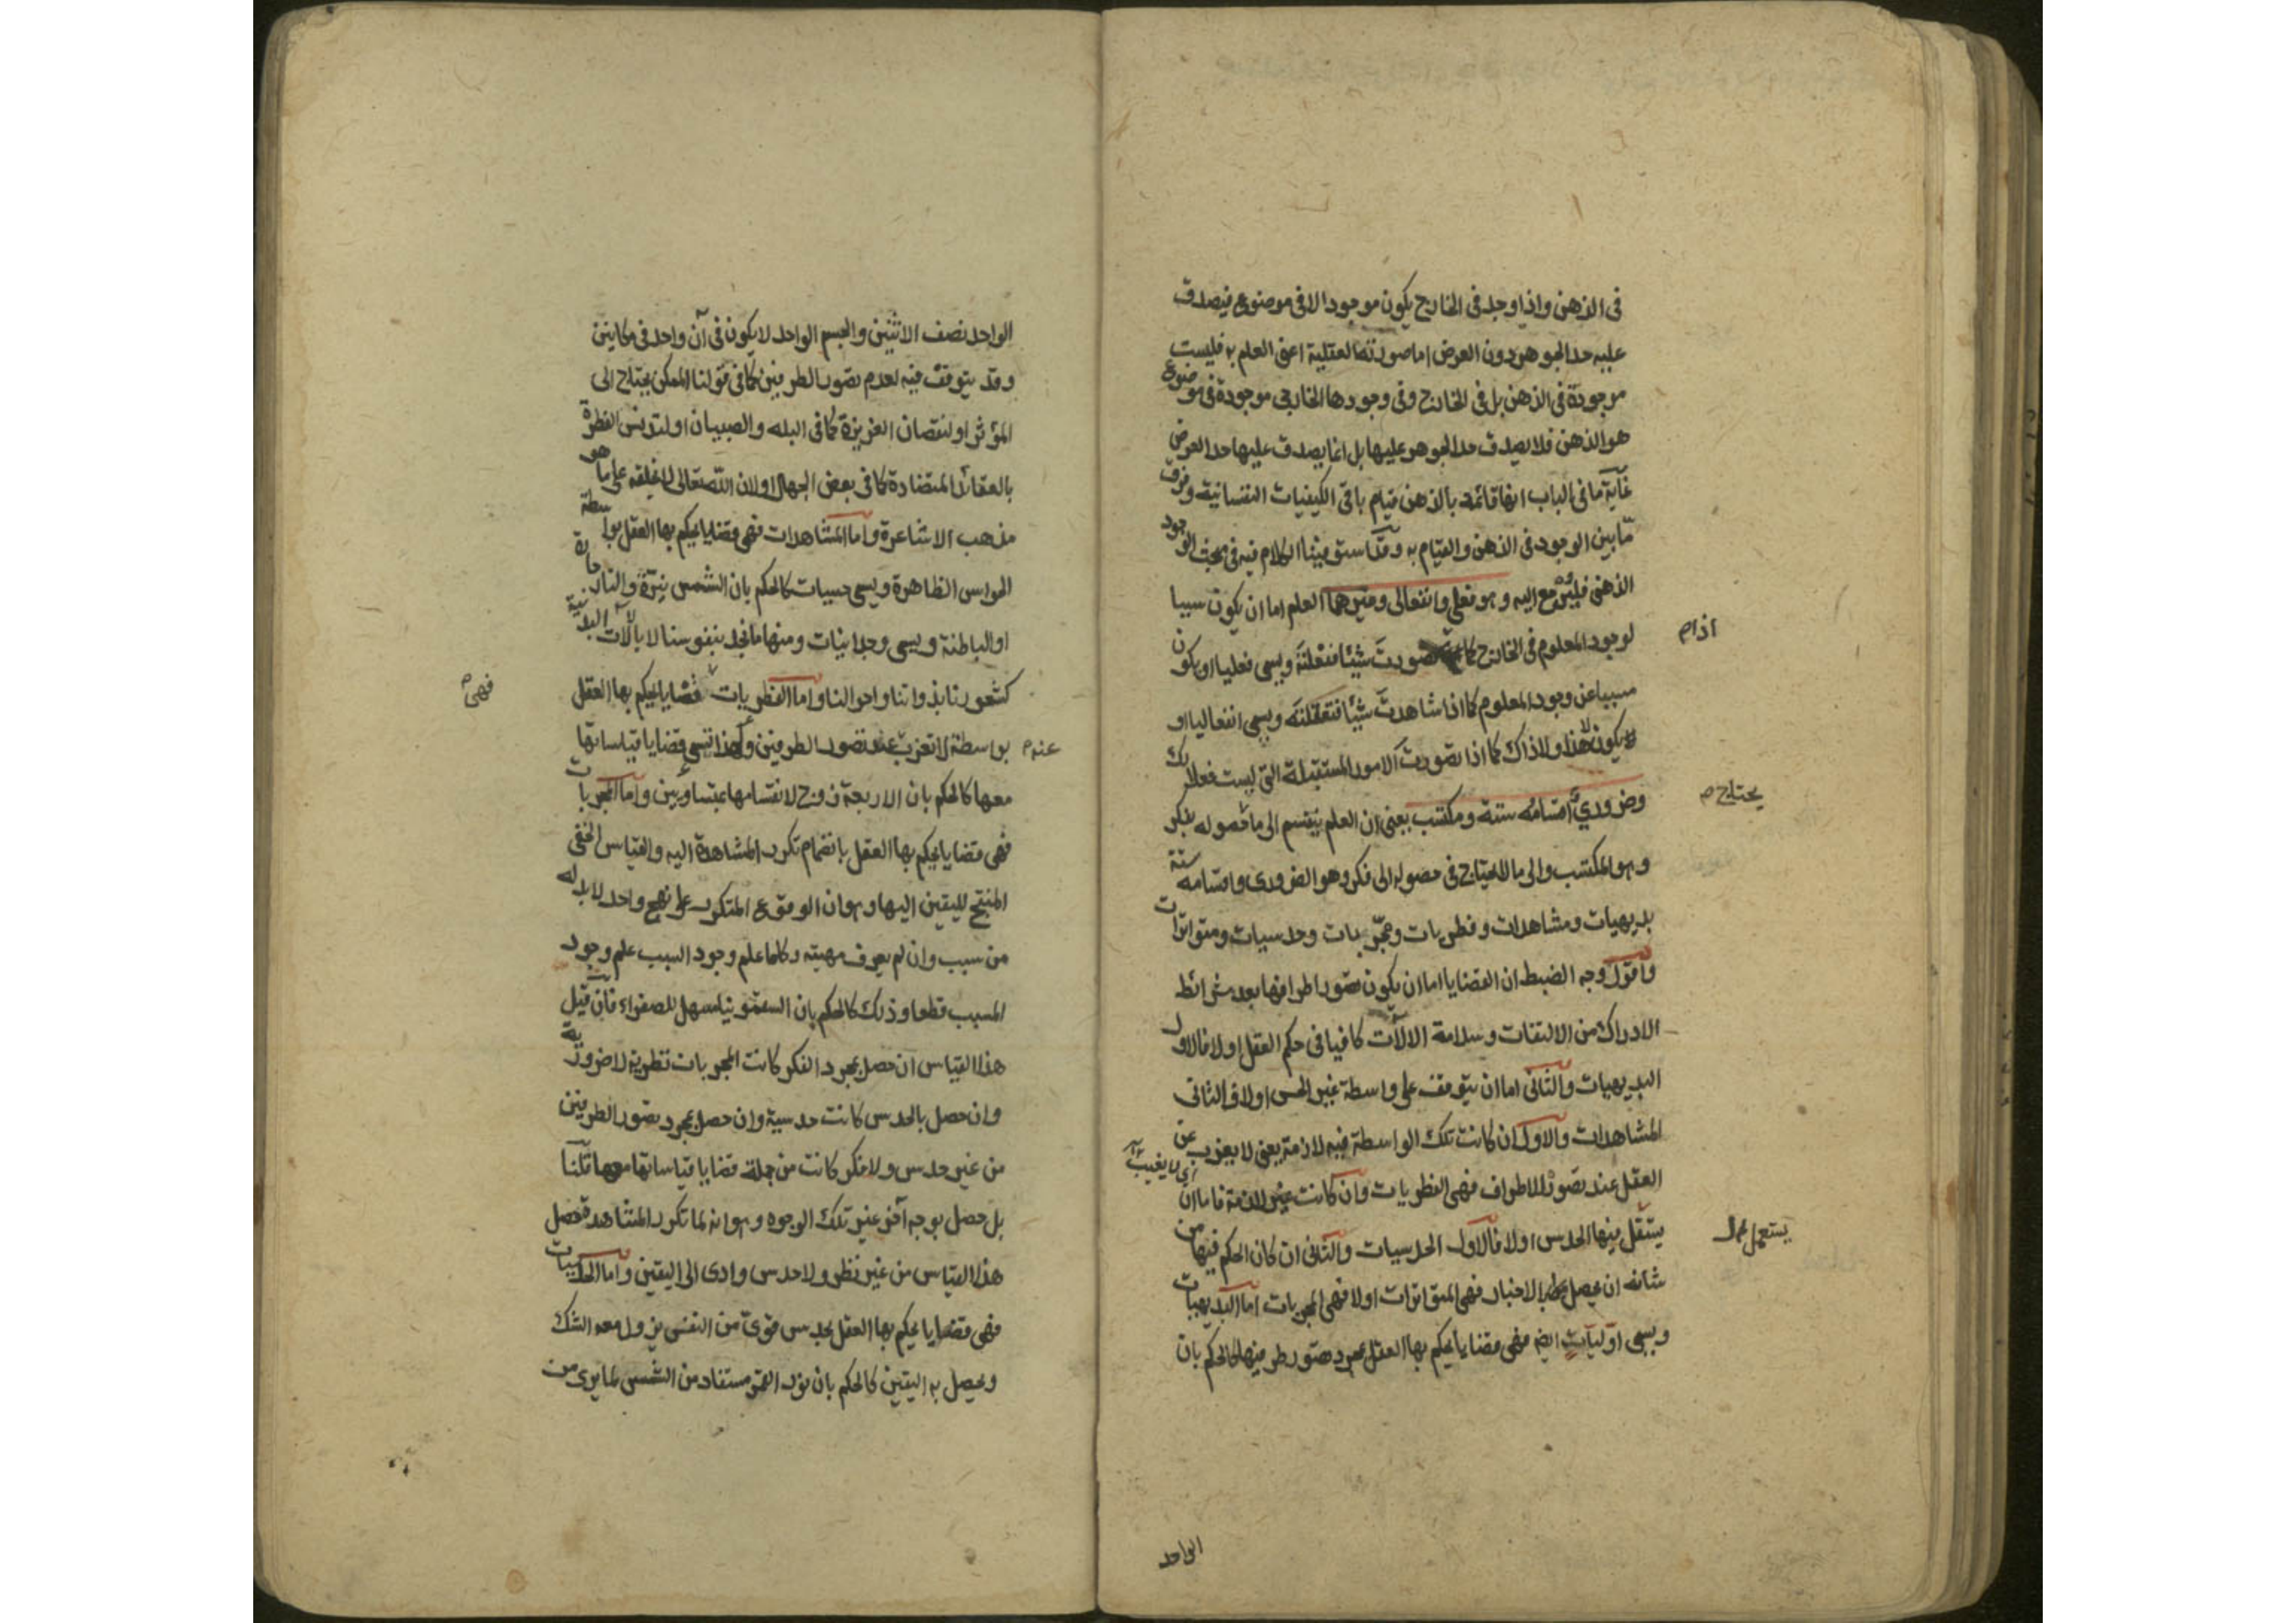 فى الذهن واذا وجد فى الخارج يكون موجودا لا فى موضوع فيصدق
عليه حد الجوهر دون العرض اما صورته العقلية اعنى العلم به فليست
موجودة فى الذهن بل فى الخارج وفى وجودها الخارجى موجودة فى موضوع
هو الذهن فلا يصدق حد الجوهر عليها بل انما يصدق عليها حد العرض
غاية ما فى الباب انها قائمة بالذهن قيام باقى الكيفيات النفسانية وفرق
ما بين الوجود فى الذهن والقيام به وقد استوفينا الكلام فيه فى بحث الوجود
الذهنى فليرجع اليه وهو فعلى وانفعالى وغيرهما العلم اما ان يكون سببا
لوجود المعلوم فى الخارج كما تصورت شيئا ففعلته ويسمى فعليا او يكون
اذا م
مسببا عن وجود المعلوم كما اذا شاهدت شيئا فتعقلته ويسمى انفعاليا او
لا يكون لا هذا ولا ذاك كما اذا تصورت الامور المستقبلة التى ليست فعلا لك
وضرورى اقسامه ستة ومكتسب يعنى ان العلم ينقسم الى ما حصوله بفكر
يحتاج م
وهو المكتسب والى ما لا يحتاج فى حصوله الى فكر وهو الضرورى واقسامه ستة
بديهيات ومشاهدات وفطريات ومجربات وحدسيات ومتواترات
واقول وجه الضبط ان القضايا اما ان يكون تصور اطرافها بعد شرائط
الادراك من الالتفات وسلامة الالات كافيا فى حكم العقل اولا فالاول
البديهيات والثانى اما ان يتوقف على واسطة غير الحس اولا والثانى
المشاهدات والاول ان كانت تلك الواسطة فيه لازمة يعنى لا يعزب عن
اى لا يغيب
العقل عند تصور الاطراف فهى الفطريات وان كانت غير لازمة فاما ان
يستعمل فيها الحدس اولا فالاول الحدسيات والثانى ان كان الحكم فيها من
شانه ان يحصل بالاخبار فهى المتواترات اولا فهى المجربات اما البديهيات
ويسمى اوليات ايضا فهى قضايا يحكم بها العقل بمجرد تصور طرفيها كالحكم بان
الواحد
الواحد نصف الاثنين والجسم الواحد لا يكون فى آن واحد فى مكانين
وقد يتوقف فيه لعدم تصور الطرفين كما فى قولنا الممكن يحتاج الى
المؤثر او لنقصان الغريزة كما فى البله والصبيان او لتدنس الفطرة
بالعقائد المتضادة كما فى بعض الجهال او لان الله تعالى لا يخلقه على ما هو
مذهب الاشاعرة واما المشاهدات فهى قضايا يحكم بها العقل بواسطة
الحواس الظاهرة ويسمى حسيات كالحكم بان الشمس نيرة والنار حارة
او الباطنة ويسمى وجدانيات ومنها ما نجد بنفوسنا لا بالالات البدنية
كشعورنا بذواتنا واحوالنا واما الفطريات فقضايا يحكم بها العقل
فهى م
بواسطة لا تعزب عنه عند تصور الطرفين ولهذا تسمى قضايا قياساتها
عنه م
معها كالحكم بان الاربعة زوج لانقسامها بمتساويين واما المجربات
فهى قضايا يحكم بها العقل بانضمام تكرر المشاهدة اليه والقياس الخفى
المنتج لليقين اليها وهو ان الوقوع المتكرر على نهج واحد لا بد له
من سبب وان لم يعرف مهيته وكلما علم وجود السبب علم وجود
المسبب قطعا وذلك كالحكم بان السقمونيا مسهل للصفراء فان قيل
هذا القياس ان حصل بمجرد الفكر كانت المجربات نظرية لا ضرورية
وان حصل بالحدس كانت حدسية وان حصل بمجرد تصور الطرفين
من غير حدس ولا فكر كانت من جملة قضايا قياساتها معها قلنا
بل حصل بوجه آخر غير تلك الوجوه وهو انه لما تكرر المشاهد حصل
هذا القياس من غير نظر ولا حدس وادى الى اليقين واما الحدسيات
فهى قضايا يحكم بها العقل بحدس قوى من النفس يزول معه الشك
ويحصل به اليقين كالحكم بان نور القمر مستفاد من الشمس لما يرى من